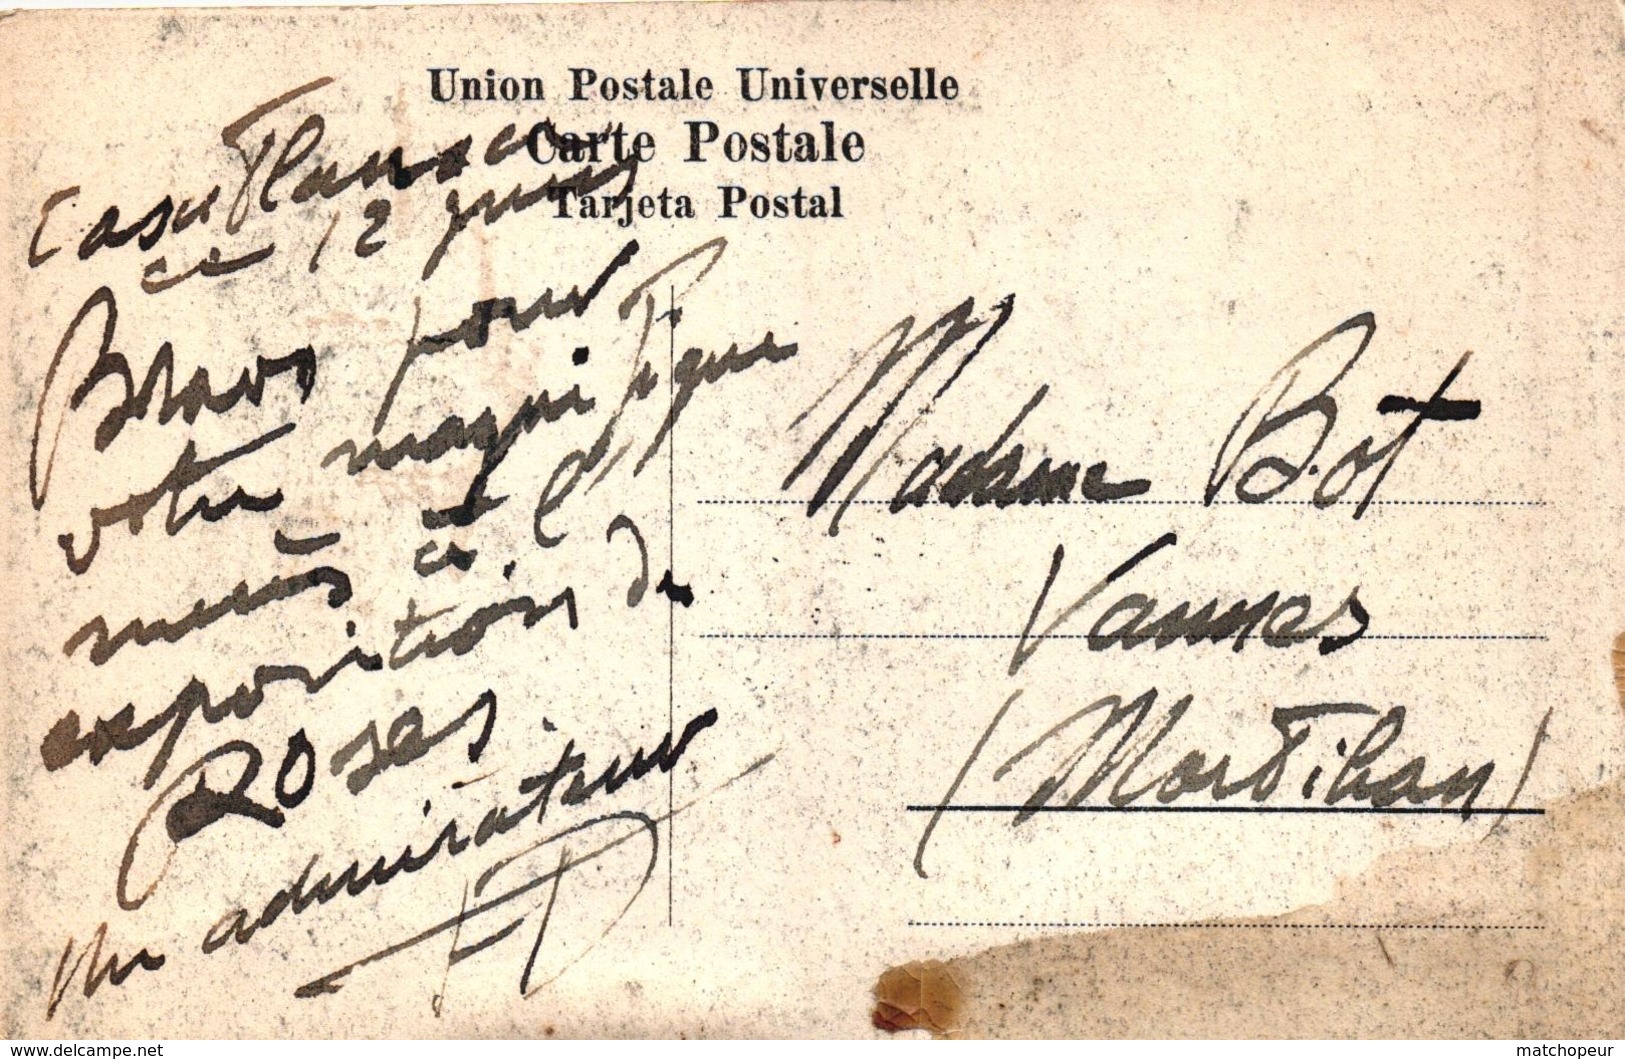 Union Postale Universelle
Carte Postale
Tarjeta Postal
Casablanca
ce 12 juin
Bravo pour
votre magnifique
succès à l'
exposition de
Roses
Un admirateur
Madame Bot
Vannes
(Morbihan)
www.delcampe.net
matchopeur